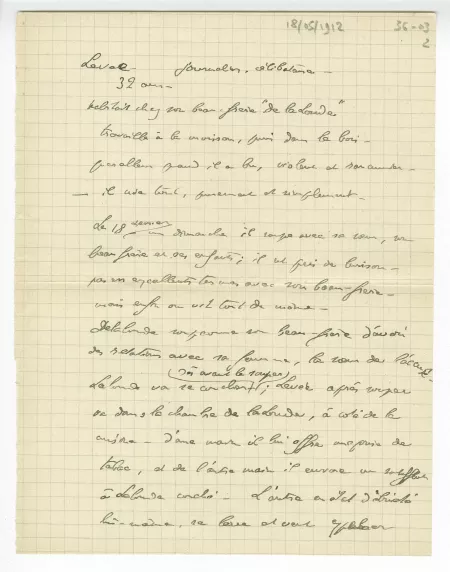 18/05/1912 36-03
2
journalier, célibataire -
32 ans -
habitait chez son beau-frère "de la Londe"
travaille à la moisson, puis dans le bois -
quand il a bu, violent et
il nie tout, purement et simplement -
Le 18 un dimanche il soupe avec sa sœur, son
beau-frère et ses enfants ; il est pris de boisson -
pas en excellents termes avec son beau-frère -
mais enfin on vit tout de même -
Delalonde soupçonne son beau-frère d'avoir
des relations avec sa femme, la sœur de l'accusé -
(dès avant le souper)
Lalonde va se coucher ; après souper
va dans la chambre de Lalonde, à côté de la
cuisine - d'une main il lui offre un peu de
tabac, et de l'autre main il envoie un soufflet
à Lalonde couché - L'autre en état d'ébriété
lui-même, se lève et veut